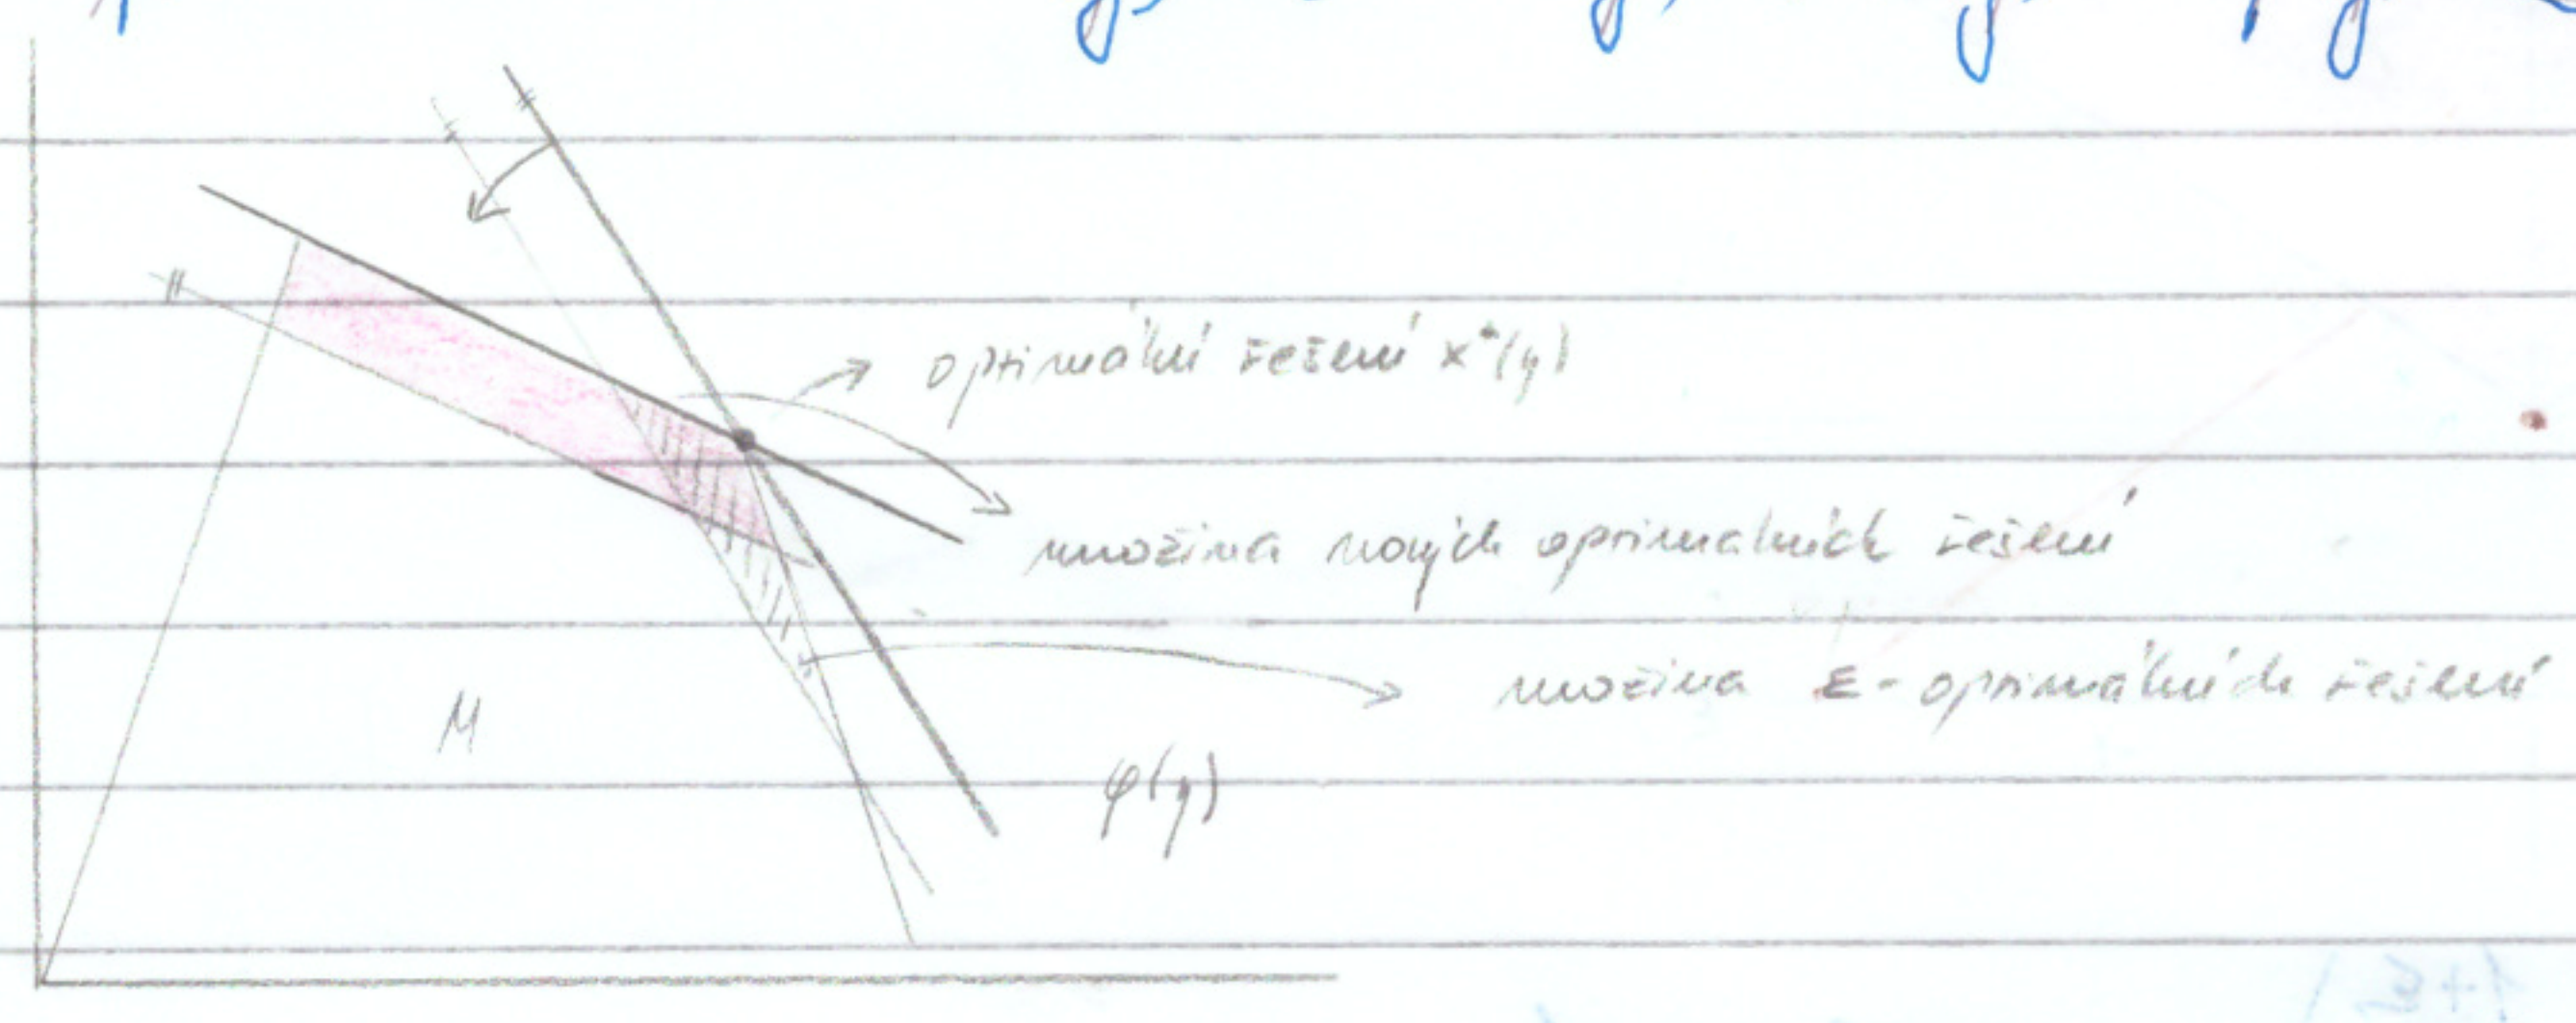 optimální řešení x*(y)
množina nových optimálních řešení
množina ε-optimálních řešení
M
φ(y)